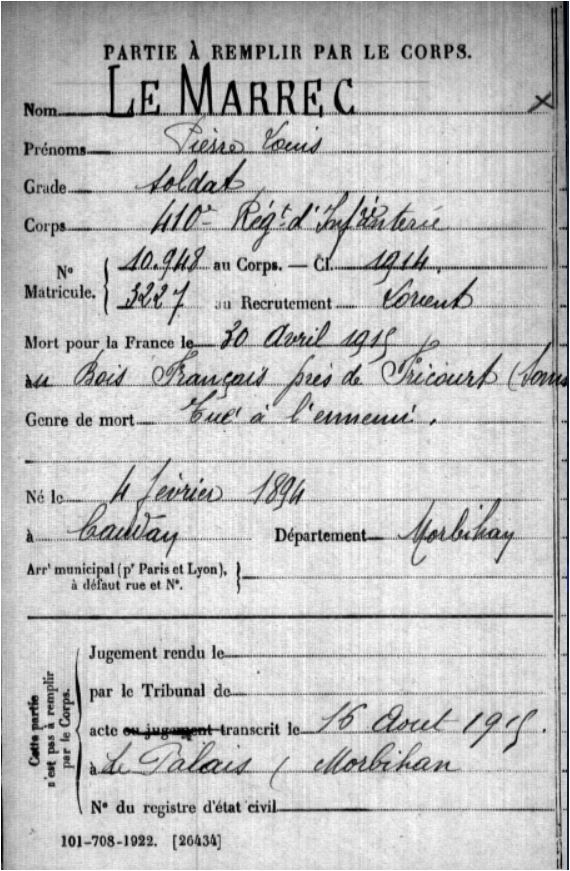 PARTIE À REMPLIR PAR LE CORPS.
Nom LE MARREC
Prénoms Pierre Louis
Grade soldat
Corps 410e Régt d'Infanterie
N° Matricule. 10.948 au Corps. — Cl. 1914.
3227 au Recrutement Lorient
Mort pour la France le 30 Avril 1915
au Bois Français près de Fricourt (Som
Genre de mort Tué à l'ennemi.
Né le 4 février 1894
à Département Morbihan
Arrt municipal (pr Paris et Lyon),
à défaut rue et N°.
Cette partie n'est pas à remplir par le Corps.
Jugement rendu le
par le Tribunal de
acte ou jugement transcrit le 16 Aout 1915.
à Le Palais ( Morbihan
N° du registre d'état civil
101-708-1922. [26434]